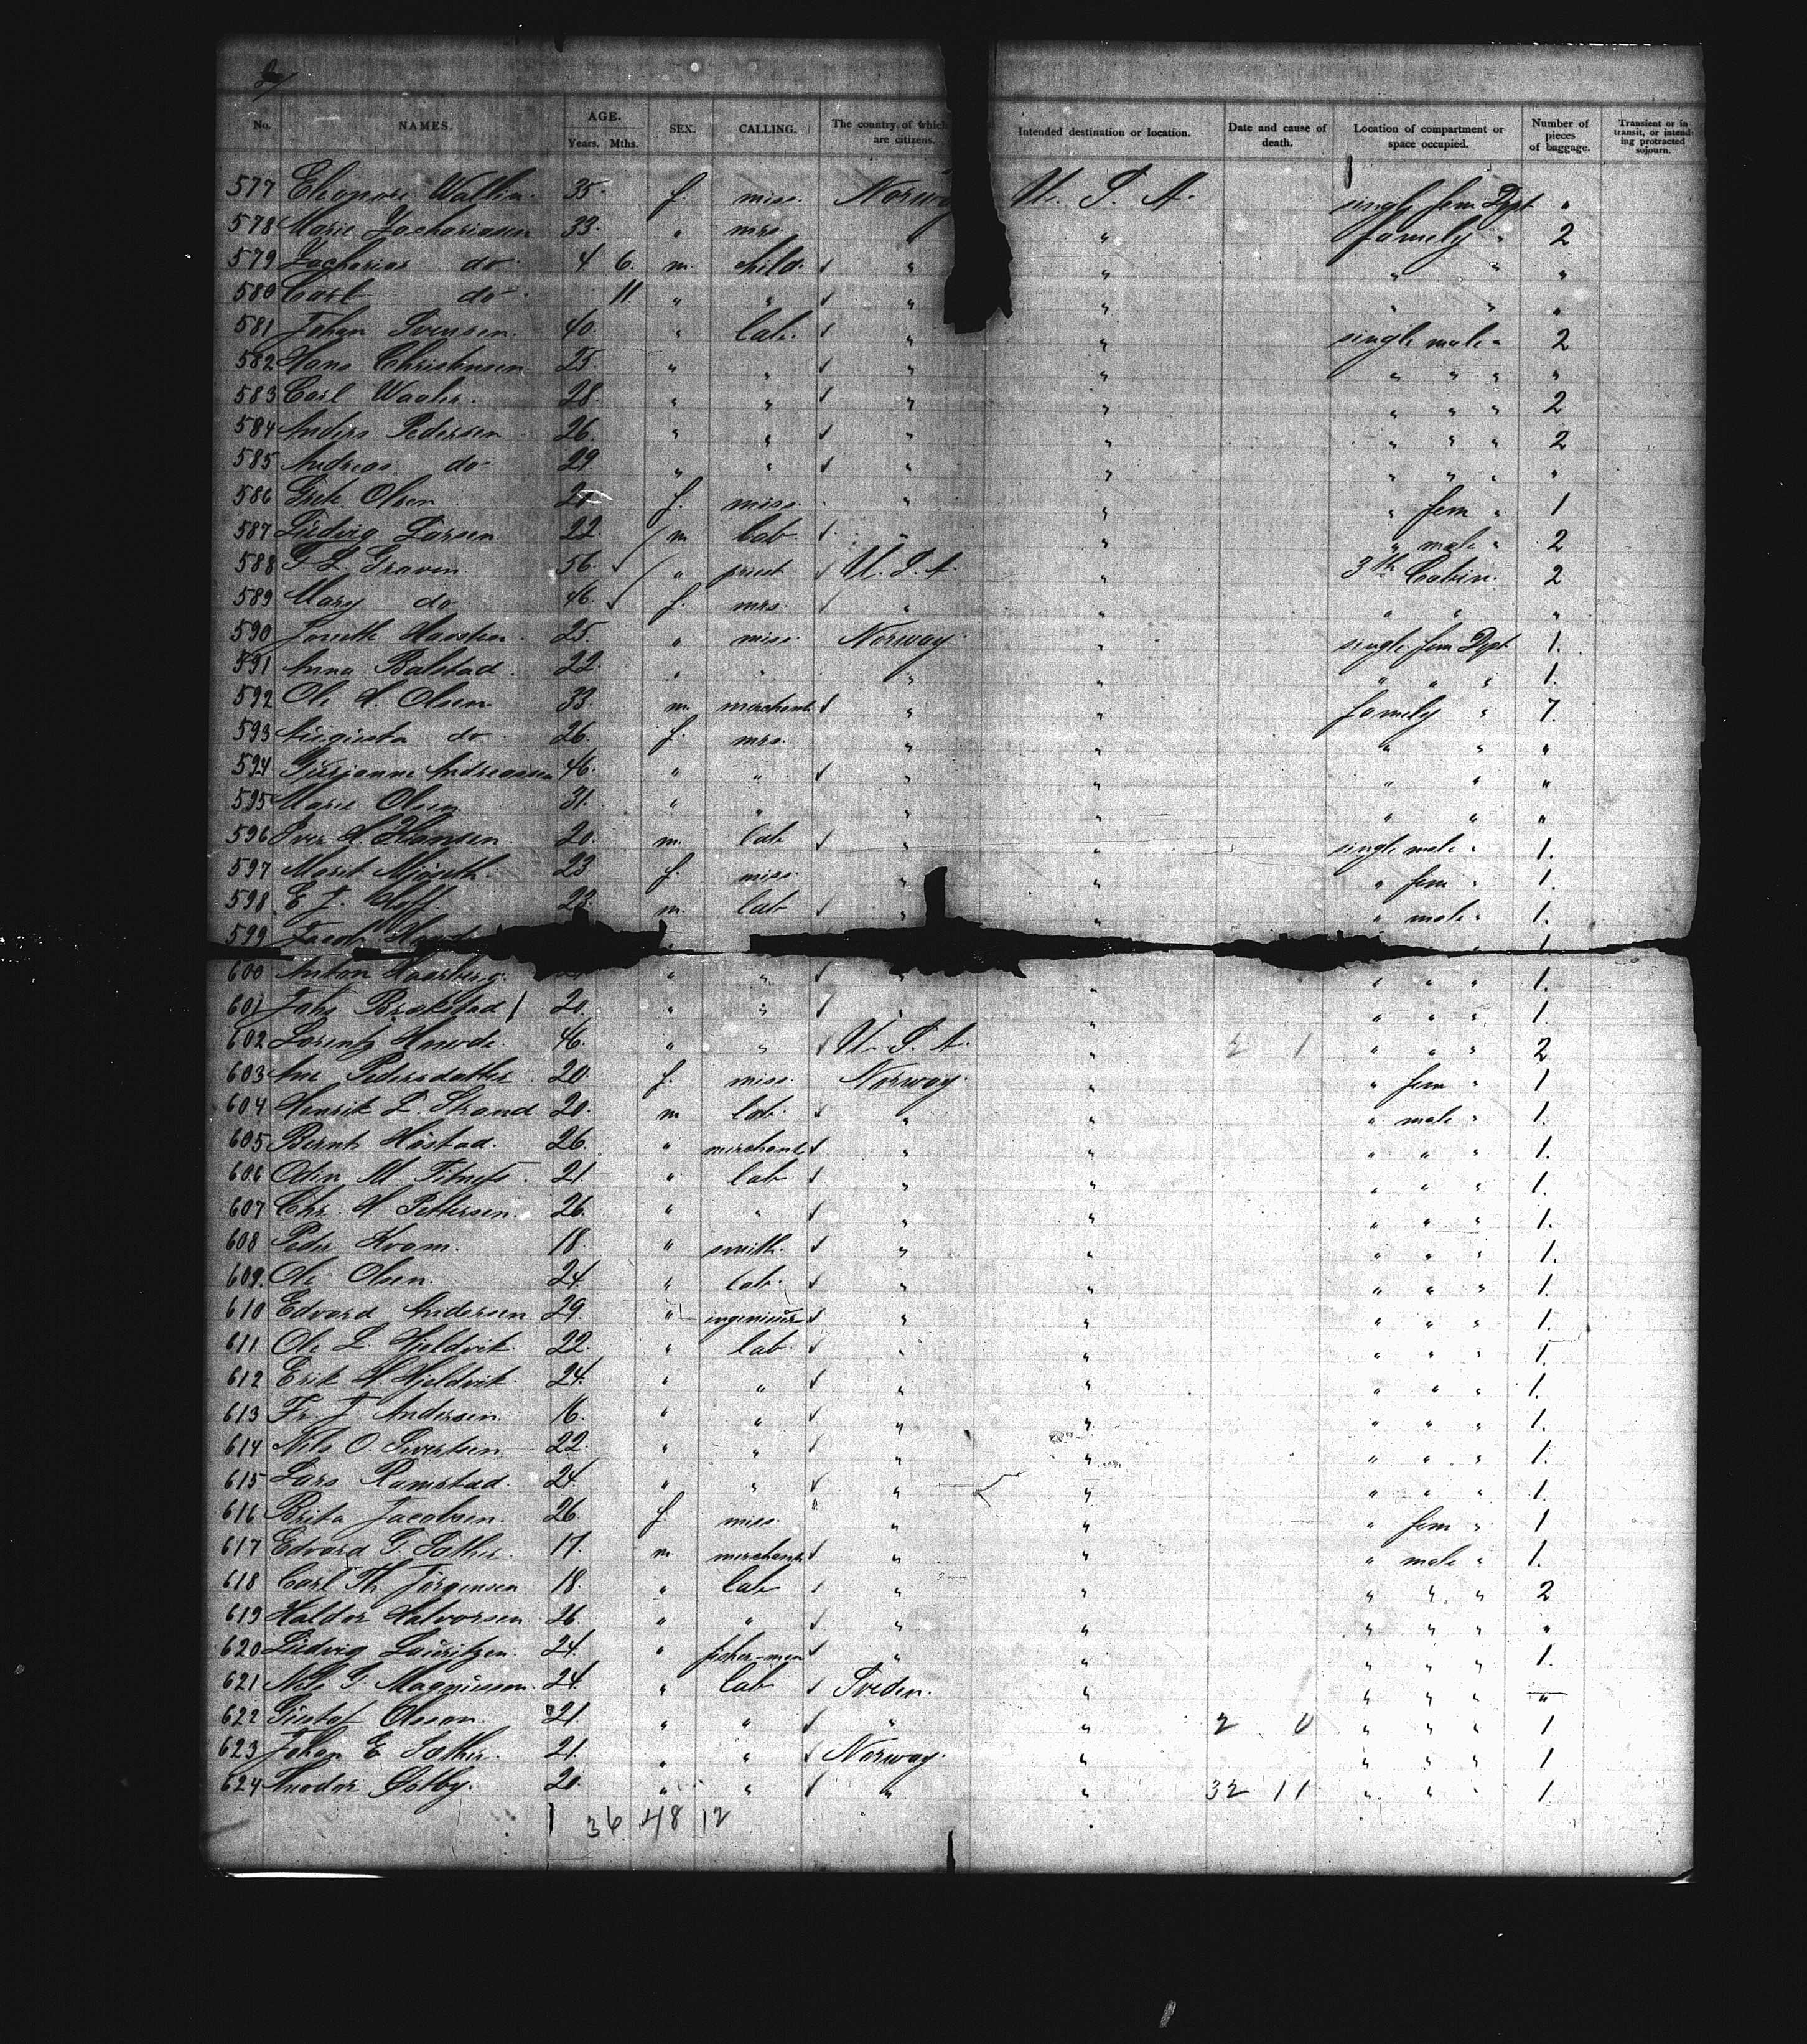 No. NAMES. AGE. Years. Mths. SEX. CALLING. The country, of which are citizens. Intended destination or location. Date and cause of death. Location of compartment or space occupied. Number of pieces of baggage. Transient or in transit, or intending protracted sojourn.
577 Eleonore Wallin. 35. f. miss. Norway U. S. A. single fem Dept "
578 Marie Zachariassen 33. " mrs. " " family " 2
579 Zacharias do 4 6. m. child. " " " " "
580 Carl do 11 " " " " " " "
581 Johan Svensen. 40. " lab. " " single male " 2
582 Hans Christensen 25. " " " " " " " "
583 Carl Waaler. 28. " " " " " " " 2
584 Anders Pedersen 26. " " " " " " " 2
585 Andreas do 29. " " " " " " " "
586 Olsen f. miss. " " " fem " 1
587 Ludvig Larsen 22. m lab " " " male " 2
588 56. " priest U. S. A. " 3th Cabin. 2
589 Mary do 46. f. mrs. " " " " "
590 25. " miss Norway. " single fem Dept 1.
591 Anna Balstad 22. " " " " " " " 1.
592 Ole A. Olsen 33. m. merchant " " family " 7.
593 Augusta do 26. f. mrs. " " " " "
594 Andreassen 46. " " " " " " "
595 Marie Olsen 31. " " " " " " "
596 Iver A. Hansen. 20. m. lab " " single male " 1.
597 Marit Mjöseth. 23 f. miss. " " " fem " 1.
598 E J. 23. m. lab " " male " 1.
599 Jacob " 1
600 Anton Haarberg. " " " " " " 1.
601 Johs Brakstad 20. " " " " " " " 1.
602 Lorentz 46. " " U. S. A. " " " " 2
603 Ane Pedersdatter 20. f. miss. Norway. " " fem " 1
604 Henrik L. Strand 20. m lab. " " " male " 1.
605 Bernt Håstad. 26. " merchant " " " " " 1.
606 Odin M 21. " lab " " " " " 1.
607 Chr. A Pettersen. 26. " " " " " " " 1.
608 Peder Kvam. 18. " smith. " " " " " 1.
609. Ole Olsen. 24. " lab. " " " " " 1.
610 Edvard Andersen 29. " ingenieur " " " " " 1.
611 Ole L. Hjeldvik 22. " lab. " " " " " 1.
612 Erik H Hjeldvik. 24. " " " " " " " 1.
613 Fr. J. Andersen. 16. " " " " " " " 1.
614 Nils O. Sivertsen 22. " " " " " " " 1.
615 Lars Ramstad. 24. " " " " " " " 1.
616 Brita Jacobsen. 26. f. miss. " " " fem " 1
617 Edvard G. Sather. 17. m. merchant " " " male " 1.
618 Carl Th. Jörgensen 18. " lab " " " " " 2
619 Haldor Halvorsen 26. " " " " " " " "
620 Ludvig Lauritzen. 24. " fisher-man " " " " " 1.
621 Nils G. Magnusson. 24. " lab Sveden. " " " " "
622 Gustaf Olsson. 21. " " " " 2 0 " " " 1
623 Johan E. Sather. 21. " " Norway. " " " " 1
624 Theodor Østby. 20. " " " " 32 11 " " " 1
36 48 12